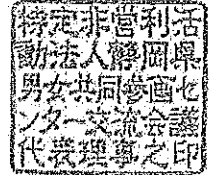 特定非営利活
動法人静岡県
男女共同参画セ
ンター交流会議
代表理事之印